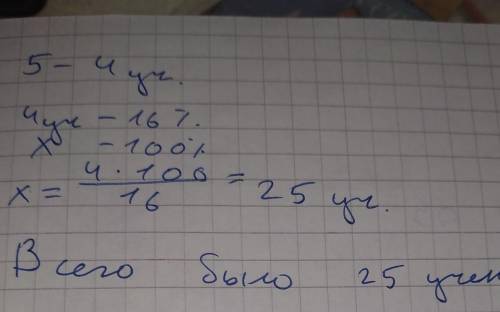 5 - 4 уч.
4 уч - 16 %.
х - 100%
х = 4 · 100 / 16 = 25 уч.
Всего было 25 учен